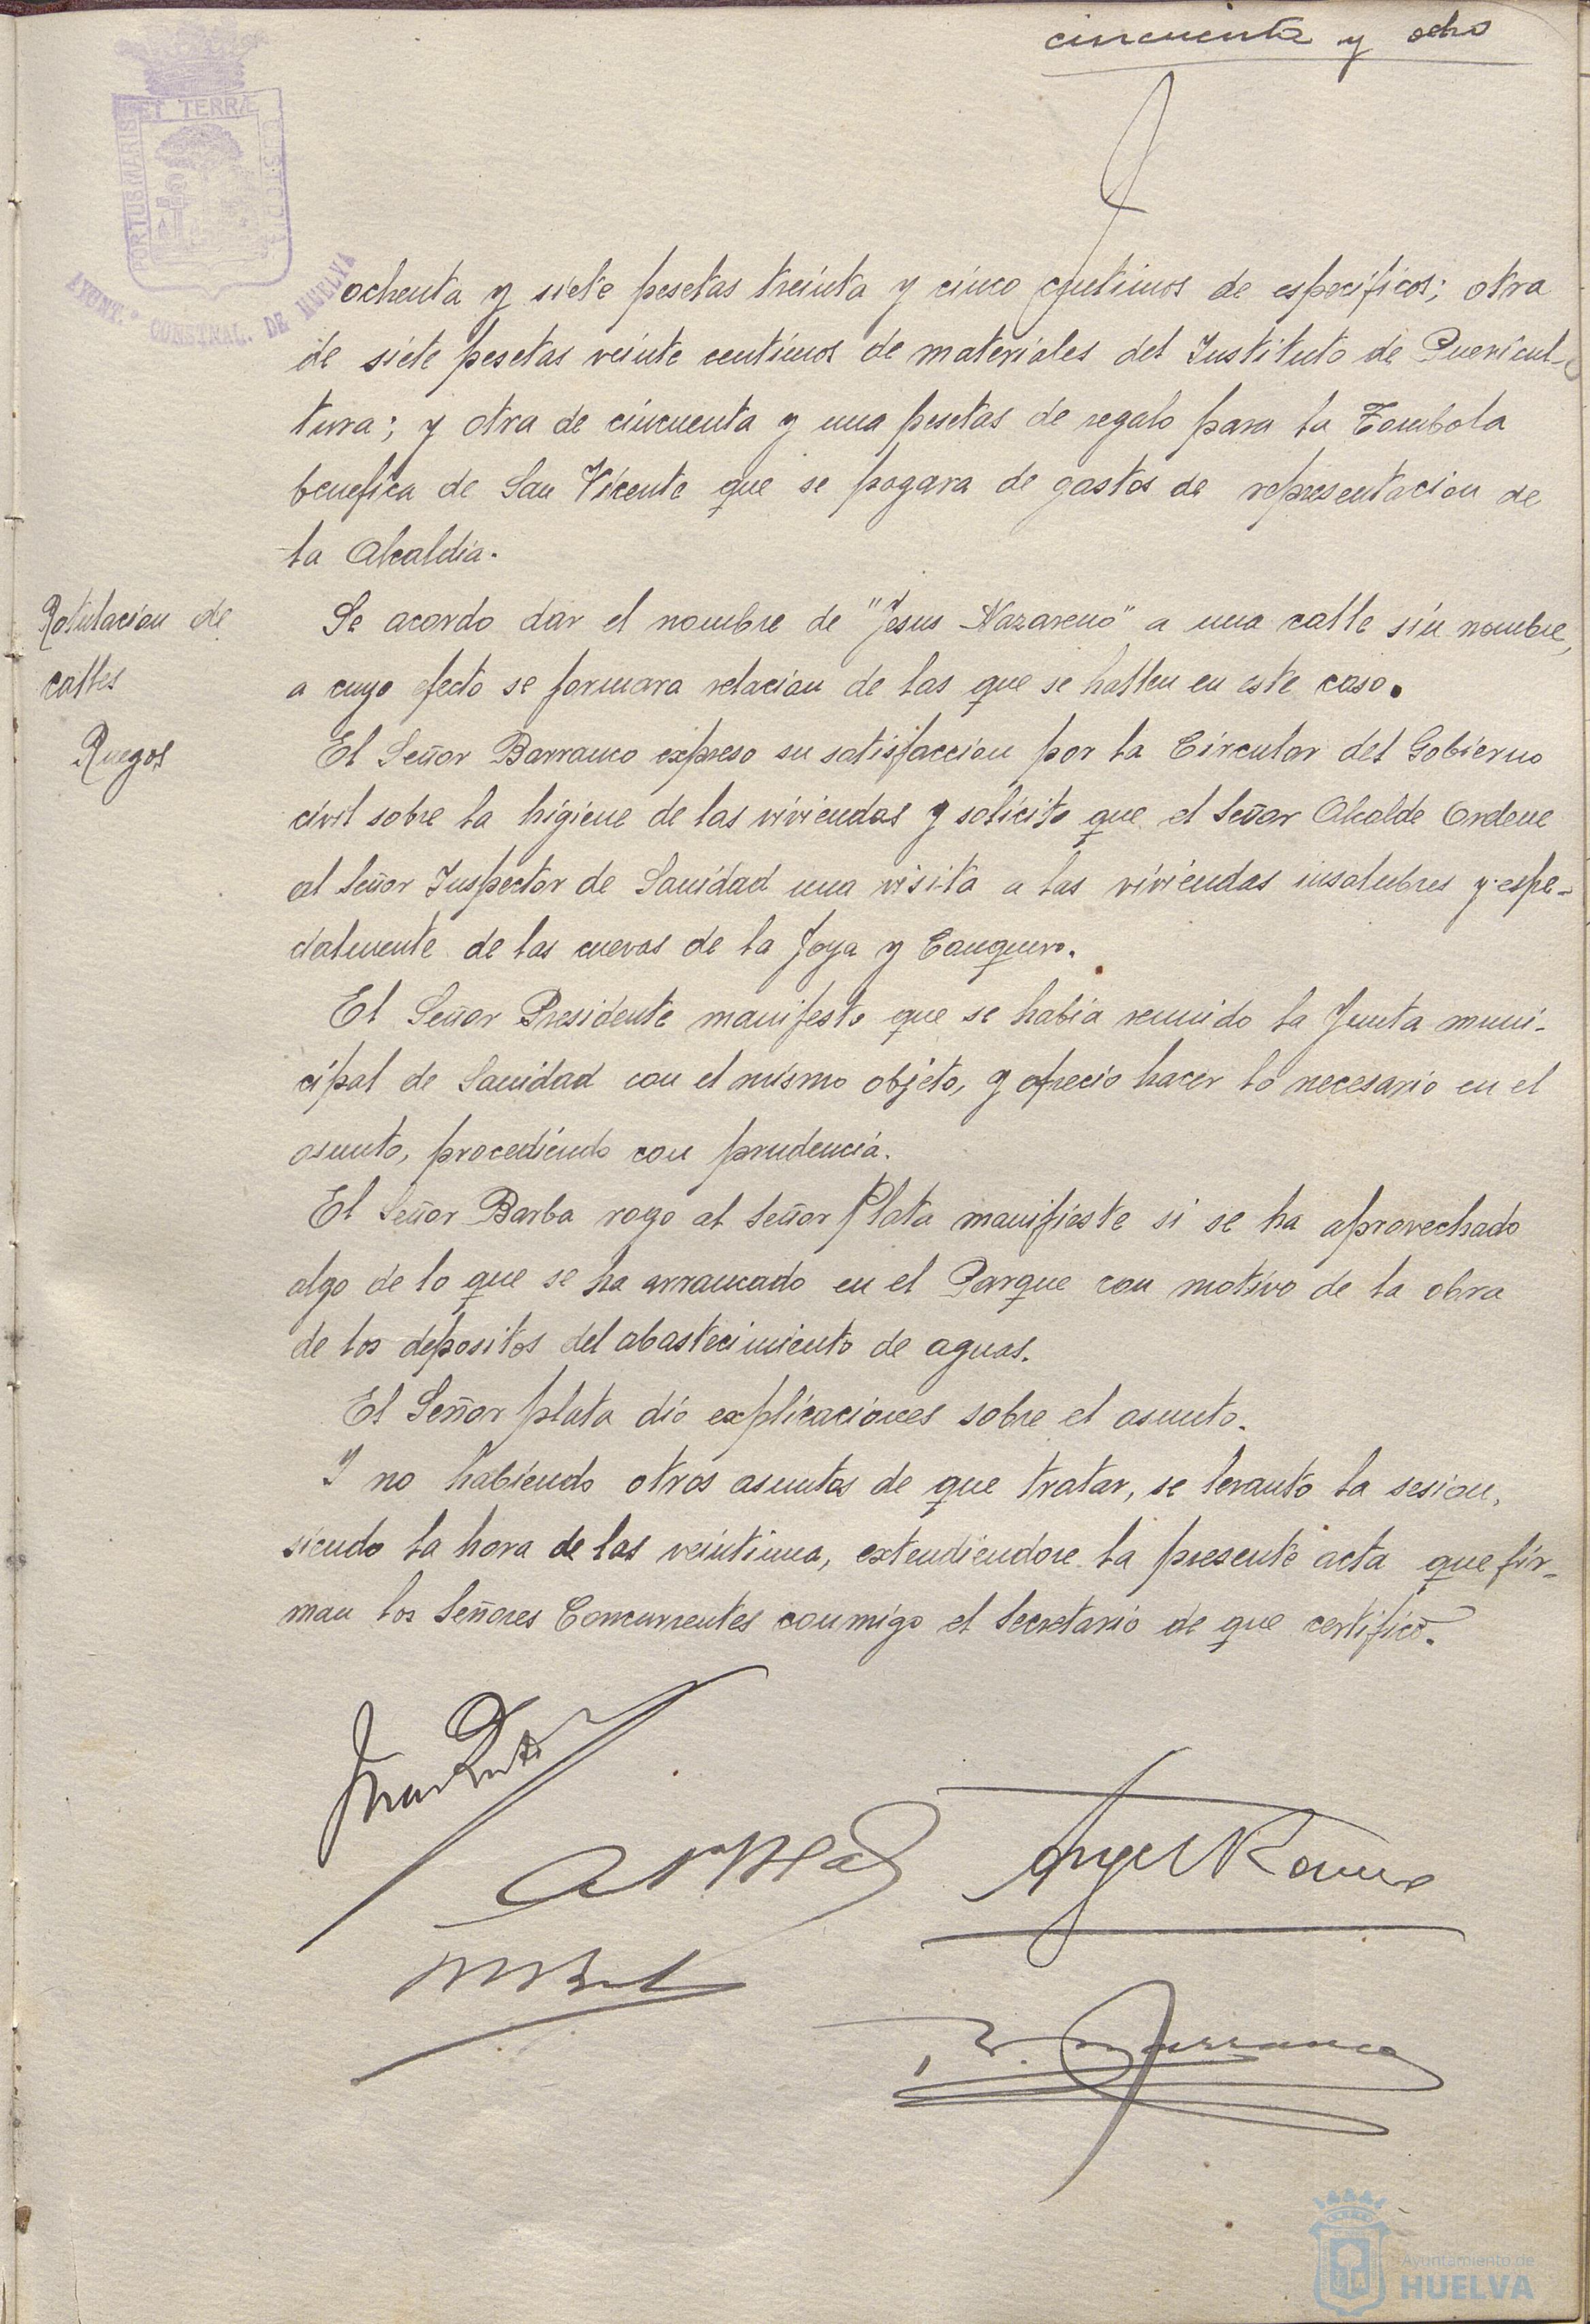 cincuenta y ocho
PORTUS MARIS ET TERRÆ CUSTODIA
AYUNT.º CONSTNAL. DE HUELVA
ochenta y siete pesetas treinta y cinco centimos de especificos; otra
de siete pesetas veinte centimos de materiales del Instituto de Puericul-
tura; y otra de cincuenta y una pesetas de regalo para la Tombola
benefica de San Vicente que se pagara de gastos de representacion de
la Alcaldia.
Rotulacion de
calles
Se acordo dar el nombre de "Jesus Nazareno" a una calle sin nombre,
a cuyo efecto se formara relacion de las que se hallen en este caso.
Ruegos
El Señor Barranco expreso su satisfaccion por la Circular del Gobierno
civil sobre la higiene de las viviendas y solicito que el Señor Alcalde Ordene
al Señor Inspector de Sanidad una visita a las viviendas insalubres y espe-
cialmente de las cuevas de la Joya y Conquero.
El Señor Presidente manifesto que se habia reunido la Junta muni-
cipal de Sanidad con el mismo objeto, y ofrecio hacer lo necesario en el
asunto, procediendo con prudencia.
El Señor Barba rogo al Señor Plata manifieste si se ha aprovechado
algo de lo que se ha arrancado en el Parque con motivo de la obra
de los depositos del abastecimiento de aguas.
El Señor plata dio explicaciones sobre el asunto.
Y no habiendo otros asuntos de que tratar, se levanto la sesion,
siendo la hora de las veintiuna, extendiendose la presente acta que fir-
man los Señores Concurrentes conmigo el Secretario de que certifico.
Angel Romero
Barranco
Ayuntamiento de
HUELVA